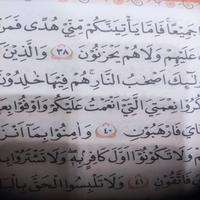 جَمِيعًا فَإِمَّا يَأْتِيَنَّكُم مِّنِّي هُدًى فَمَن
عَلَيْهِمْ وَلَا هُمْ يَحْزَنُونَ ٣٨ وَالَّذِينَ
أَصْحَٰبُ النَّارِ هُمْ فِيهَا خَٰلِدُونَ
نِعْمَتِيَ الَّتِي أَنْعَمْتُ عَلَيْكُمْ وَأَوْفُوا
فَارْهَبُونِ ٤٠ وَءَامِنُوا بِمَا
وَلَا تَكُونُوا أَوَّلَ كَافِرٍ بِهِ وَلَا تَشْتَرُوا
فَاتَّقُونِ ٤١ وَلَا تَلْبِسُوا الْحَقَّ